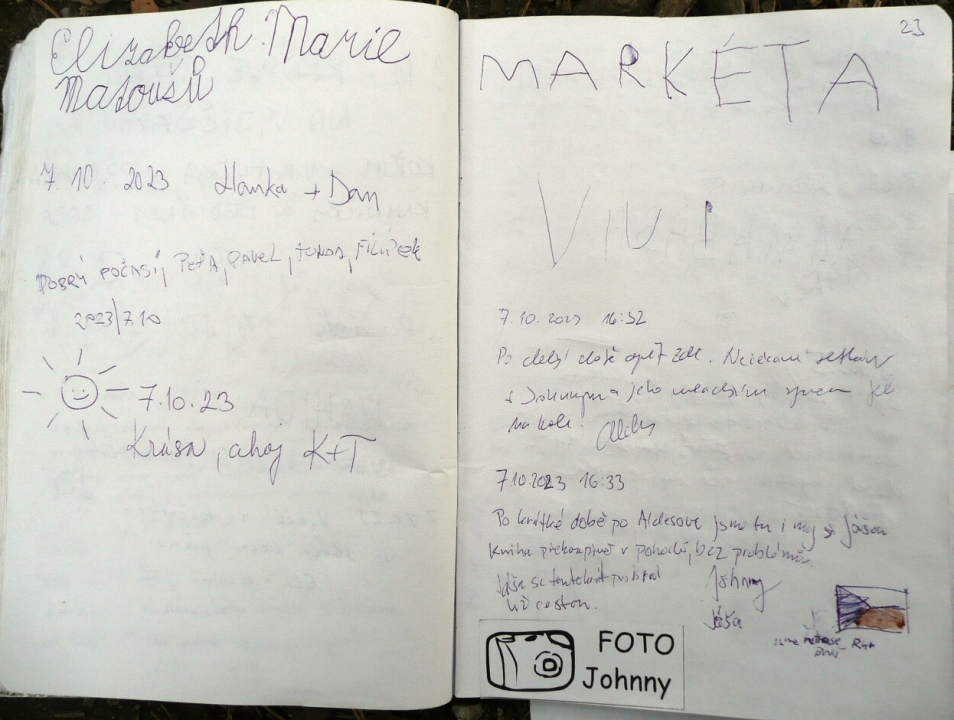 Elizabeth Marie
Matoušů
7.10. 2023 Hanka + Dan
DOBRÝ POČASÍ, PEŤA, PAVEL, TONDA, FILÍPEK
2023/7.10
7.10.23
Krása, ahoj K+T
23
MARKÉTA
VIVI
7.10.2023 16:32
Po delší době opět zde. Nečekané setkání
s Johnnym a jeho mladším synem
na kole.
7.10.2023 16:33
Po krátké době po Aldesovi jsme tu i my s Jášou
Kniha překvapivě v pohodě, bez problémů.
Jáša se tentokrát
cestou.
Johnny
Jáša
FOTO
Johnny